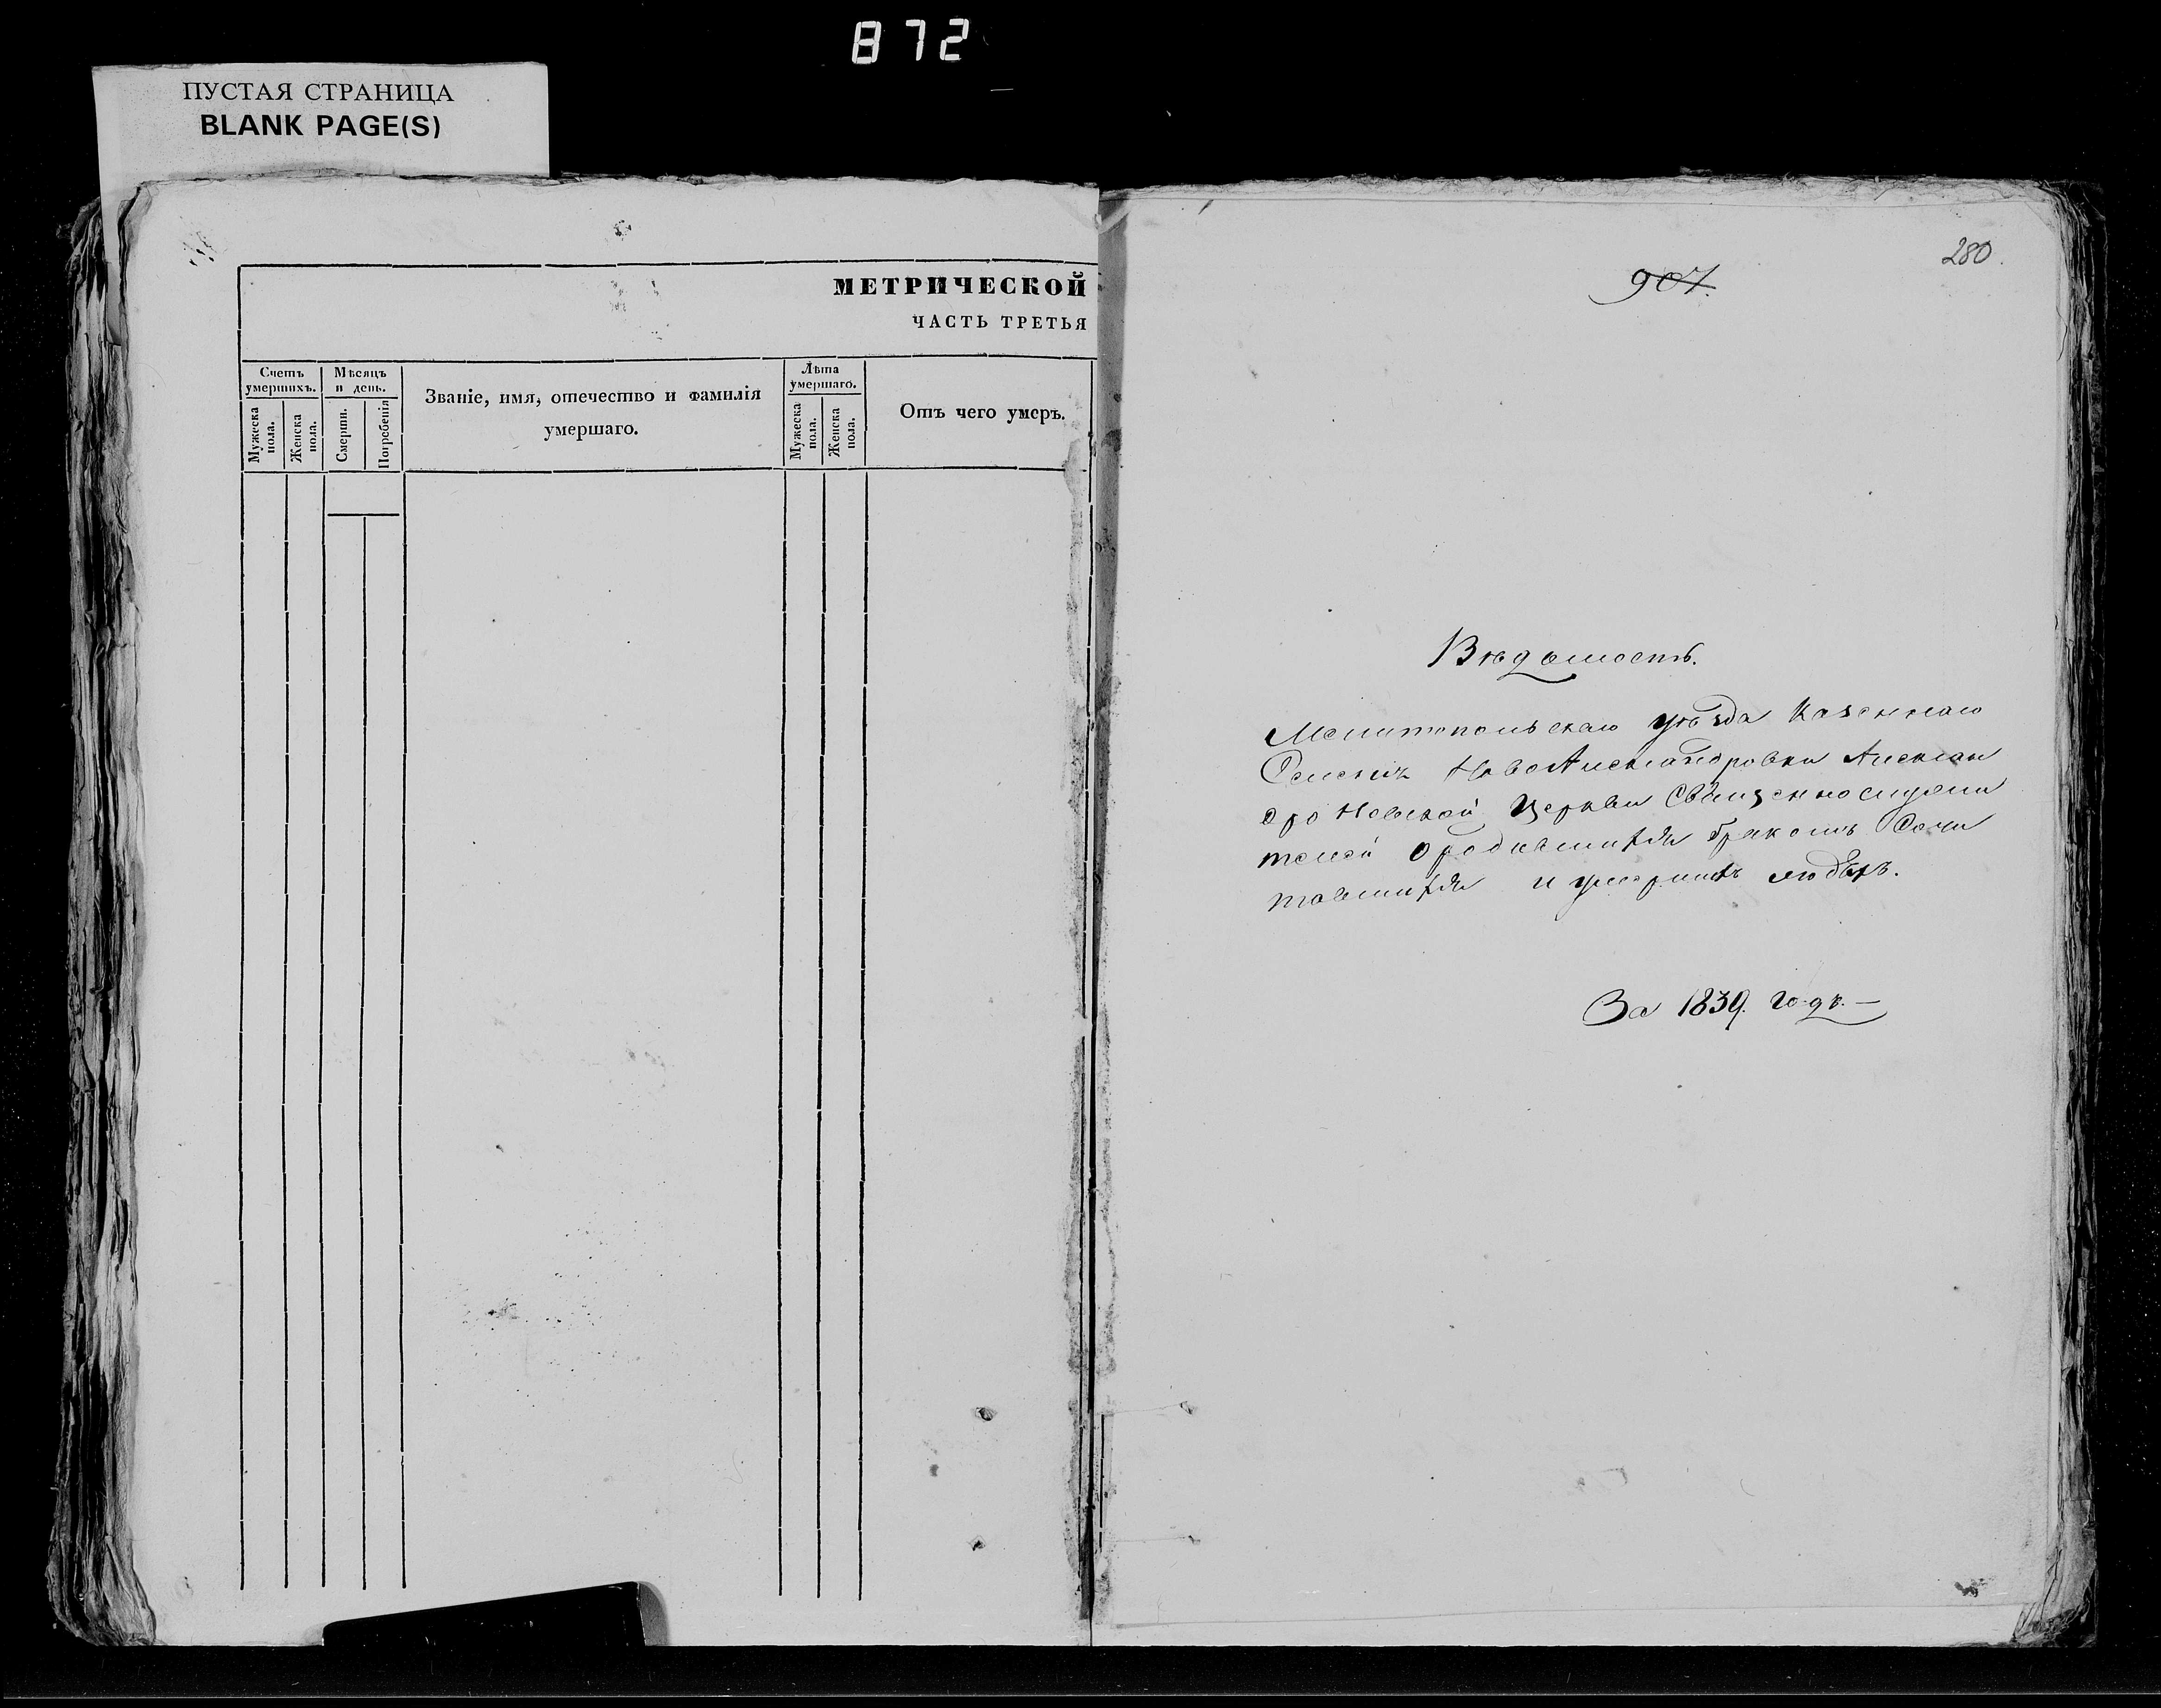 872
ПУСТАЯ СТРАНИЦА
BLANK PAGE(S)
МЕТРИЧЕСКОЙ
ЧАСТЬ ТРЕТЬЯ
Счетъ умершихъ.
Мѣсяцъ и день.
Званіе, имя, отечество и фамилія умершаго.
Лѣта умершаго.
Отъ чего умеръ.
Мужеска пола.
Женска пола.
Смерти.
Погребенія
Мужеска пола.
Женска пола.
280.
907.
Вѣдомость.
Мелитопольскаго уѣзда Казеннаго
Селенія НовоАлександровки Алексан
дро Невской Церкви Священнослужи
телей о родившихся бракомъ Соче
тавшихся и умершихъ людѣхъ.
За 1839. годъ. —